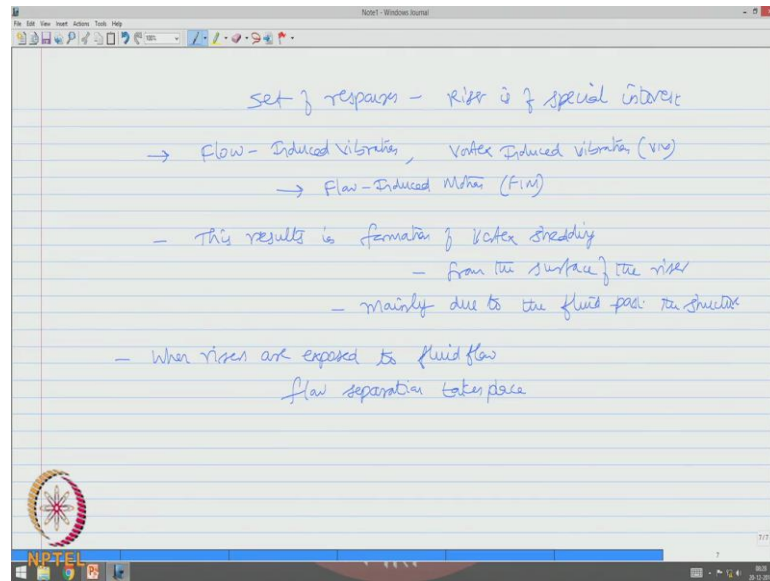 Note1 - Windows Journal
File Edit View Insert Actions Tools Help
set of responses - Riser is of special interest
→ Flow-Induced Vibration, Vortex Induced vibration (VIV)
→ Flow-Induced Motion (FIM)
- This results in formation of Vortex shedding
- from the surface of the riser
- mainly due to the fluid past the structure
- When risers are exposed to fluid flow
flow separation takes place
7/7
7
NPTEL